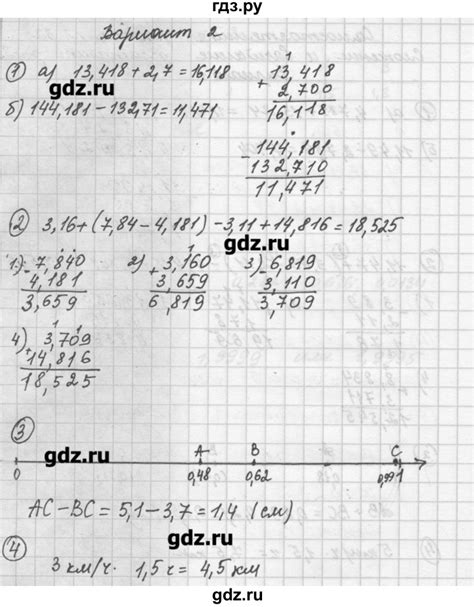 гдз.ру
Вариант 2
① а) 13,418 + 2,7 = 16,118
1
+ 13,418
2,700
16,118
gdz.ru
б) 144,181 - 132,71 = 11,471
- 144,181
132,710
11,471
gdz.ru
② 3,16 + (7,84 - 4,181) - 3,11 + 14,816 = 18,525
gdz.ru
1) - 7,840
4,181
3,659
2) + 3,160
3,659
6,819
3) - 6,819
3,110
3,709
4) + 3,709
14,816
18,525
③
gdz.ru
gdz.ru
A B C
0 0,48 0,62 0,99 1
AC - BC = 5,1 - 3,7 = 1,4 (см)
④
gdz.ru
gdz.ru
3 км/ч · 1,5 ч = 4,5 км